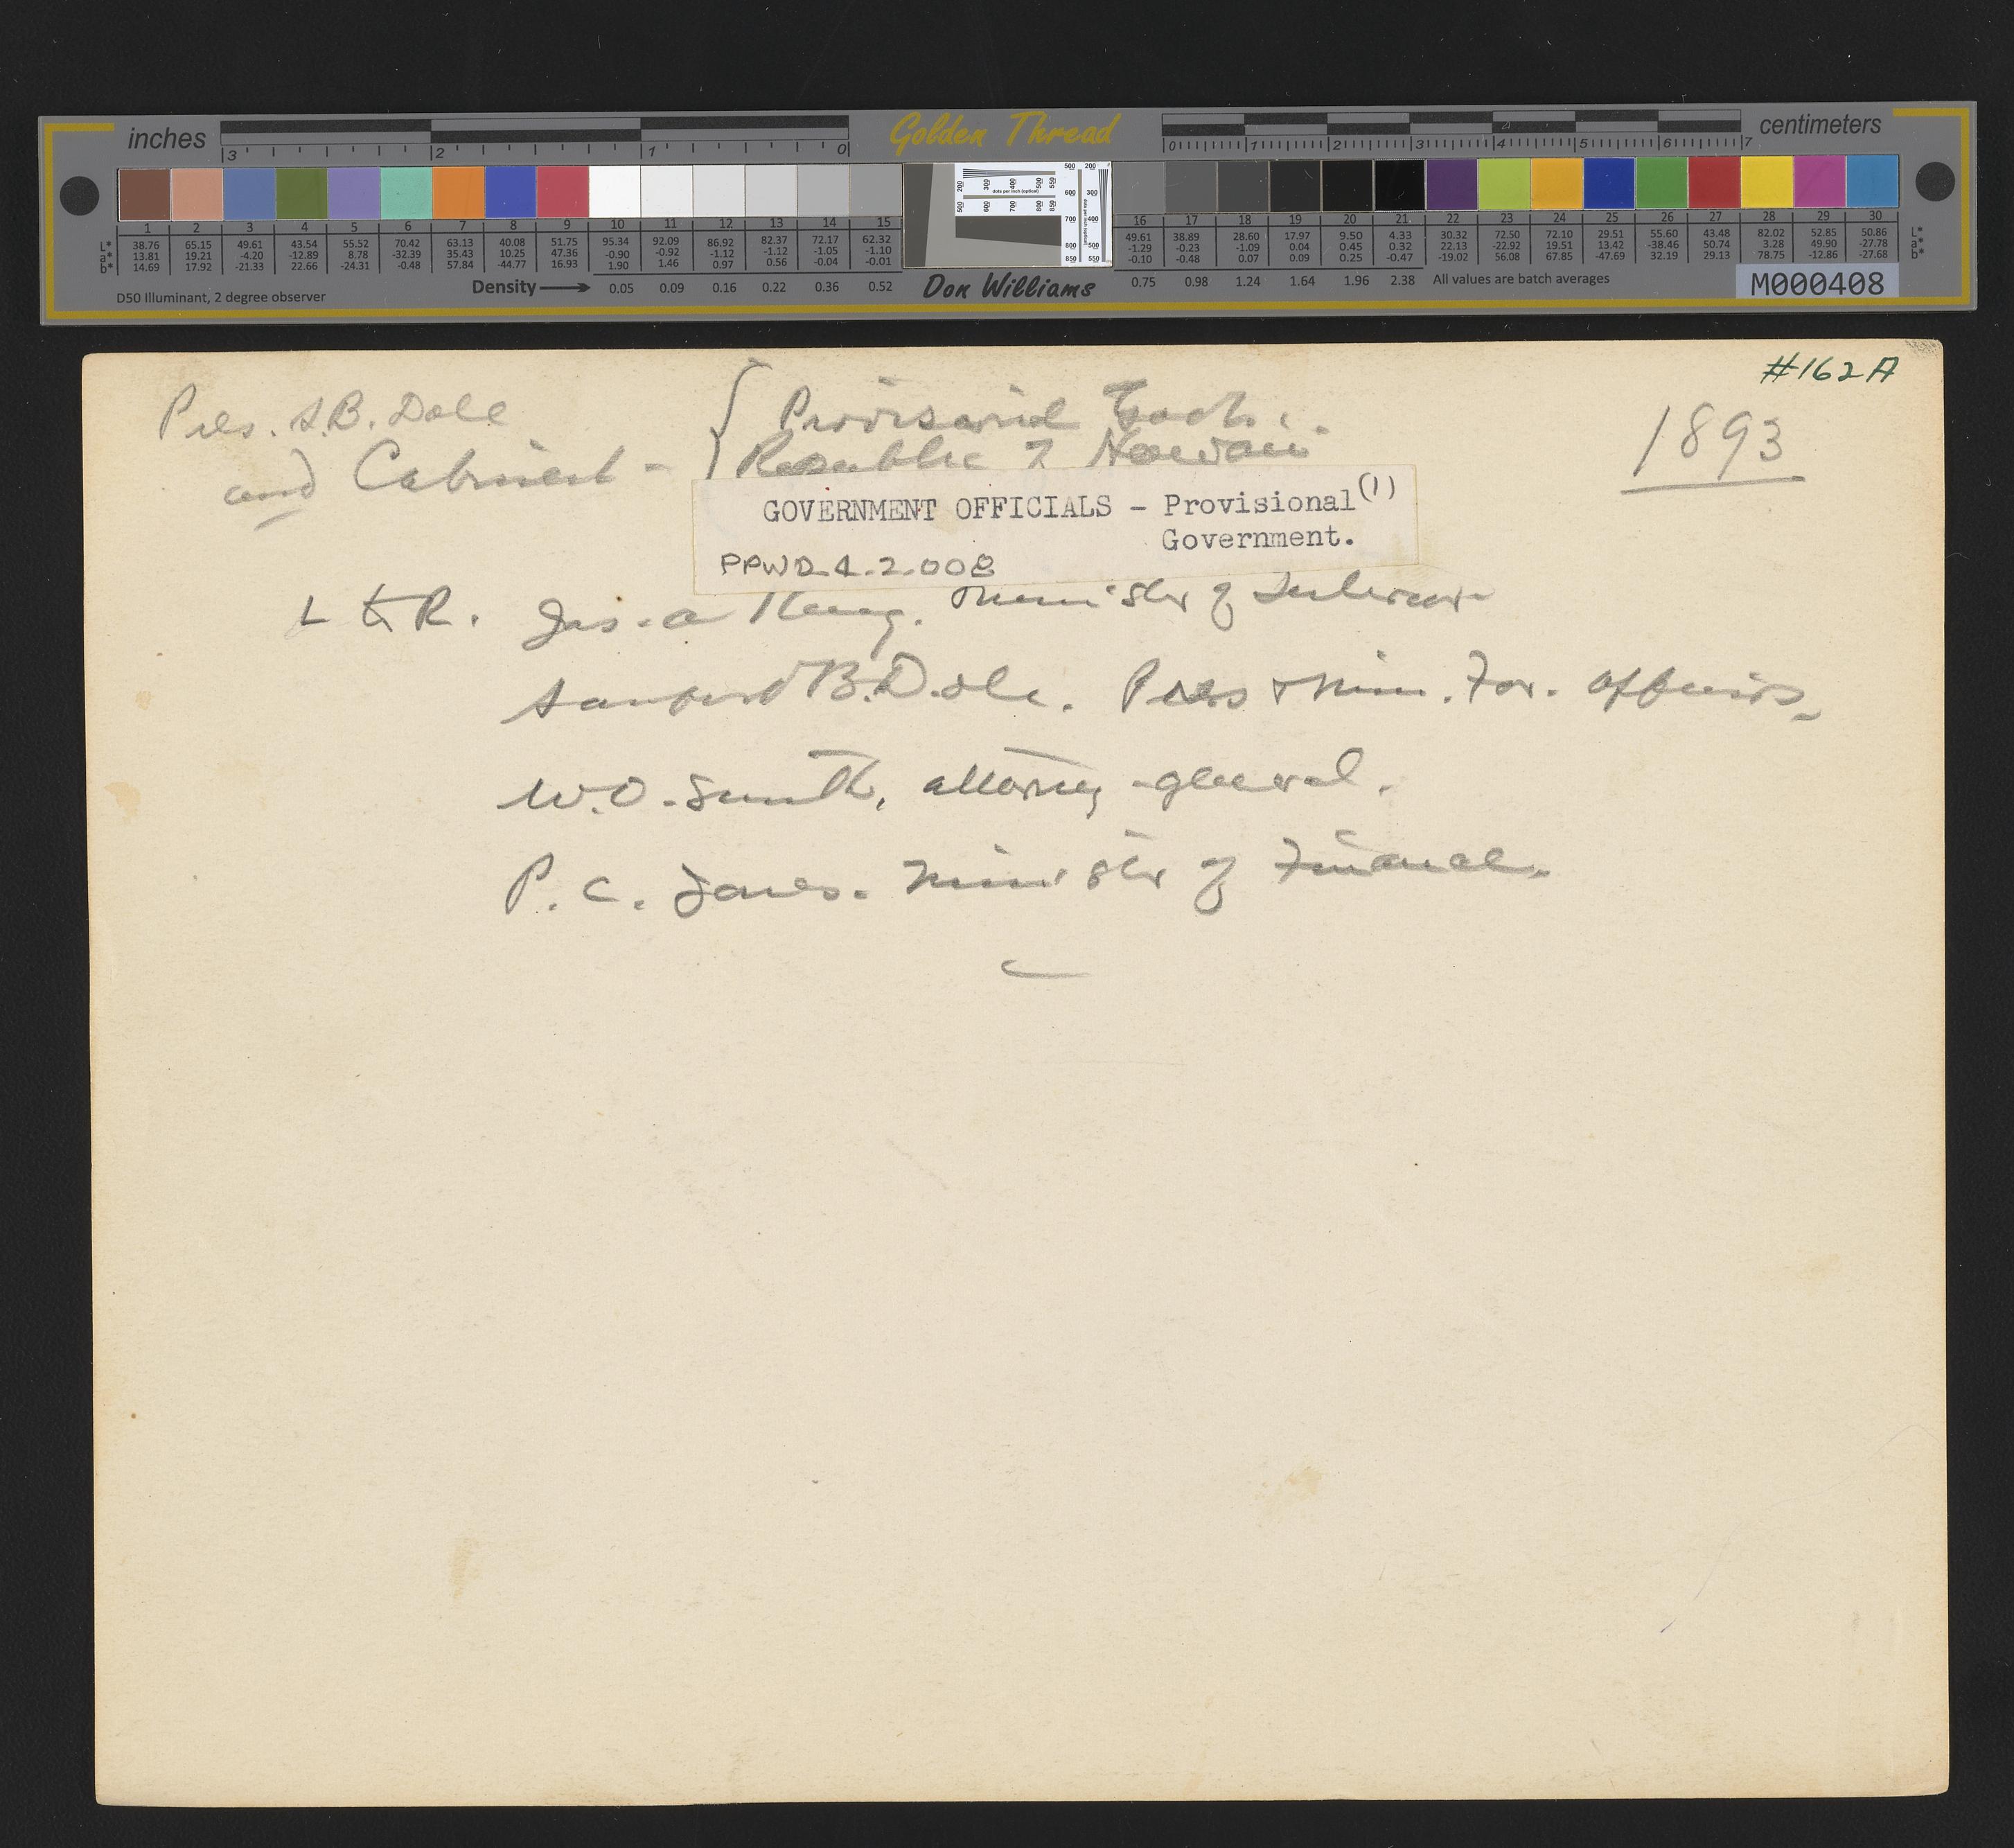 inches
3 2 1 0
Golden Thread
0 1 2 3 4 5 6 7
centimeters
1 2 3 4 5 6 7 8 9 10 11 12 13 14 15
L* 38.76 65.15 49.61 43.54 55.52 70.42 63.13 40.08 51.75 95.34 92.09 86.92 82.37 72.17 62.32
a* 13.81 19.21 -4.20 -12.89 8.78 -32.39 35.43 10.25 47.36 -0.90 -0.92 -1.12 -1.12 -1.05 -1.10
b* 14.69 17.92 -21.33 22.66 -24.31 -0.48 57.84 -44.77 16.93 1.90 1.46 0.97 0.56 -0.04 -0.01
16 17 18 19 20 21 22 23 24 25 26 27 28 29 30
49.61 38.89 28.60 17.97 9.50 4.33 30.32 72.50 72.10 29.51 55.60 43.48 82.02 52.85 50.86 L*
-1.29 -0.23 -1.09 0.04 0.45 0.32 22.13 -22.92 19.51 13.42 -38.46 50.74 3.28 49.90 -27.78 a*
-0.10 -0.48 0.07 0.09 0.25 -0.47 -19.02 56.08 67.85 -47.69 32.19 29.13 78.75 -12.86 -27.68 b*
D50 Illuminant, 2 degree observer
Density 0.05 0.09 0.16 0.22 0.36 0.52
Don Williams
0.75 0.98 1.24 1.64 1.96 2.38 All values are batch averages
M000408
#162A
Pres. S.B. Dole
and Cabinet -
Provisional Govt.
Republic of Hawaii
1893
GOVERNMENT OFFICIALS - Provisional (1)
Government.
PPWD 4.2.008
L to R. Jas. A King. Minister of Interior
Sanford B. Dole. Pres & Min. For. Affairs.
W.O. Smith, Attorney-general.
P. C. Jones. Minister of Finance.